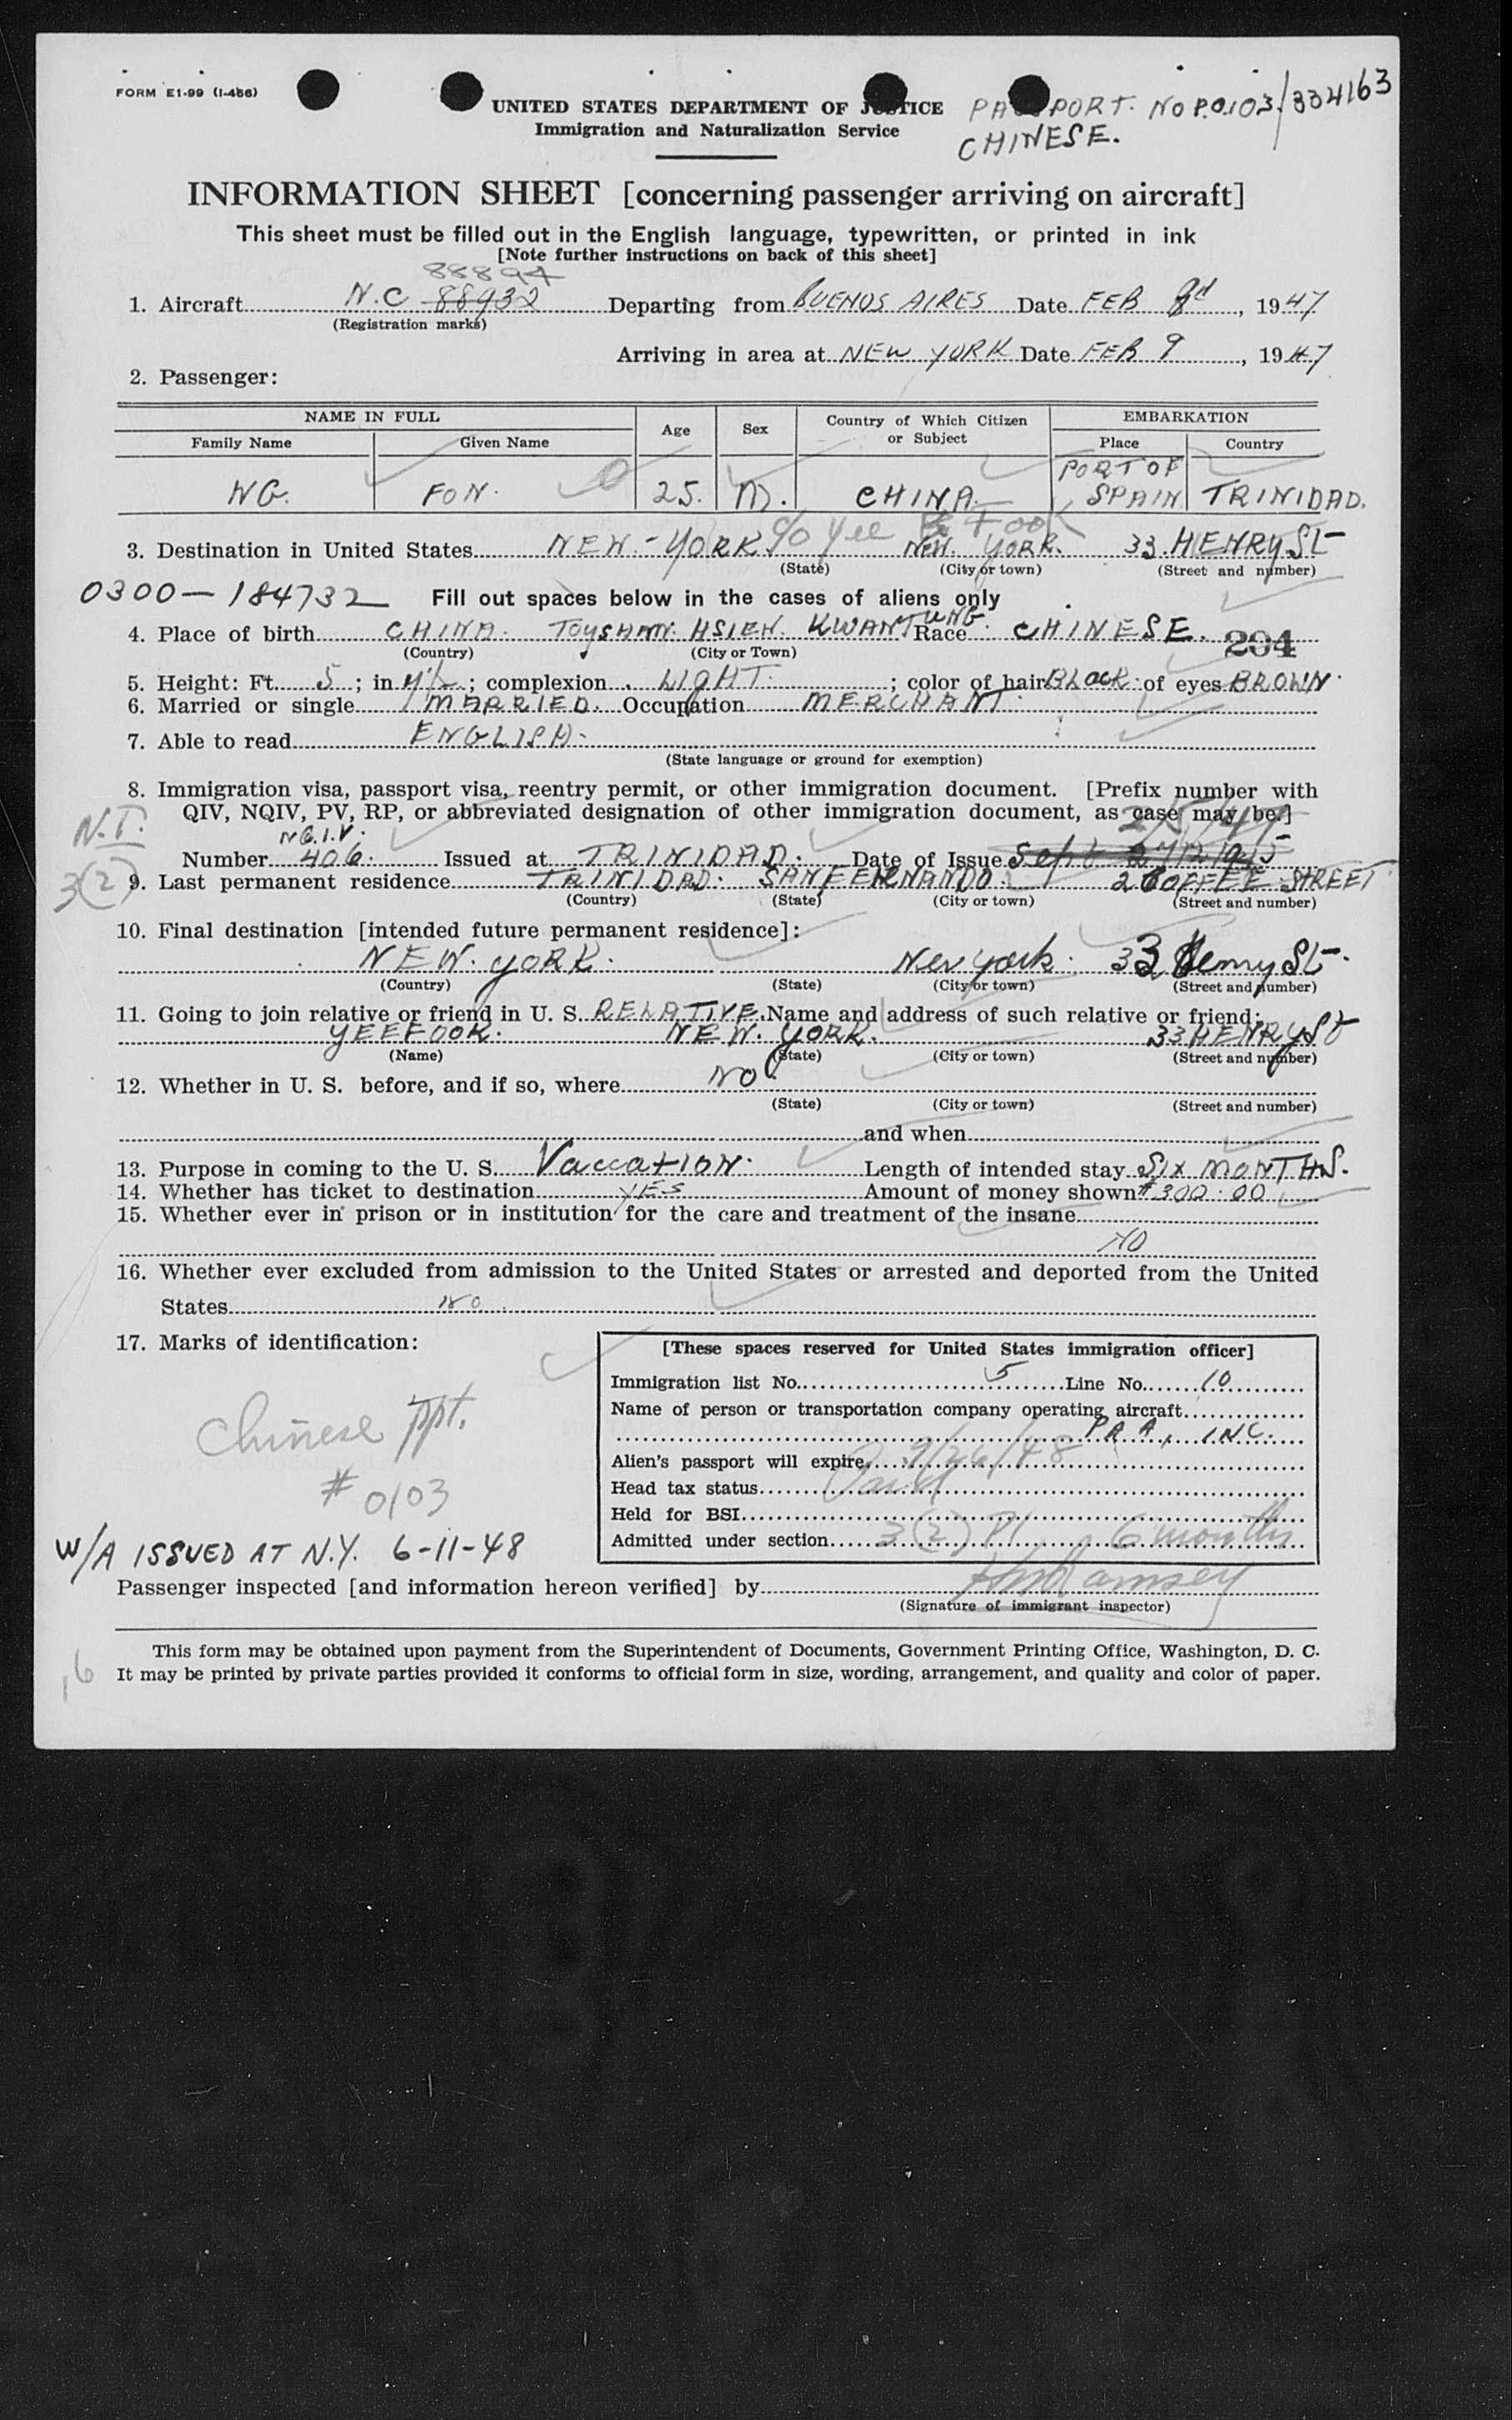 FORM E1-99 (I-466)
UNITED STATES DEPARTMENT OF JUSTICE
Immigration and Naturalization Service
PASSPORT. NO P.0103/334163
CHINESE.
INFORMATION SHEET [concerning passenger arriving on aircraft]
This sheet must be filled out in the English language, typewritten, or printed in ink
[Note further instructions on back of this sheet]
88894
1. Aircraft N.C 88932 Departing from BUENOS AIRES Date FEB 8d, 1947
(Registration marks)
Arriving in area at NEW YORK Date FEB 9, 1947
2. Passenger:
NAME IN FULL Age Sex Country of Which Citizen or Subject EMBARKATION
Family Name Given Name Place Country
NG. FON. 25. M. CHINA PORT OF SPAIN TRINIDAD.
c/o Yee Fook
3. Destination in United States NEW-YORK NEW. YORK. 33. HENRY St
(State) (City or town) (Street and number)
0300-184732 Fill out spaces below in the cases of aliens only
4. Place of birth CHINA. TOYSHAN. HSIEN. KWANTUNG. Race CHINESE. 204
(Country) (City or Town)
5. Height: Ft. 5; in 4½; complexion LIGHT.; color of hair BLACK. of eyes BROWN.
6. Married or single MARRIED. Occupation MERCHANT.
7. Able to read ENGLISH.
(State language or ground for exemption)
8. Immigration visa, passport visa, reentry permit, or other immigration document. [Prefix number with
QIV, NQIV, PV, RP, or abbreviated designation of other immigration document, as case may be.]
N.T. N Q.I.V. 2/5/47
Number 406. Issued at TRINIDAD. Date of Issue Sept 27/1945
3(2) 9. Last permanent residence TRINIDAD. SANFERNANDO. 2 COFFEE STREET
(Country) (State) (City or town) (Street and number)
10. Final destination [intended future permanent residence]:
NEW. YORK. New york. 33 Henry St.
(Country) (State) (City or town) (Street and number)
11. Going to join relative or friend in U. S. RELATIVE. Name and address of such relative or friend:
YEEFOOK. NEW. YORK. 33 HENRY St
(Name) (State) (City or town) (Street and number)
12. Whether in U. S. before, and if so, where NO
(State) (City or town) (Street and number)
and when
13. Purpose in coming to the U. S. Vaccation. Length of intended stay SIX MONTHS.
14. Whether has ticket to destination YES Amount of money shown $300.00
15. Whether ever in prison or in institution for the care and treatment of the insane
NO
16. Whether ever excluded from admission to the United States or arrested and deported from the United
States No.
17. Marks of identification:
Chinese Ppt.
# 0103
W/A ISSUED AT N.Y. 6-11-48
[These spaces reserved for United States immigration officer]
Immigration list No. 5 Line No. 10
Name of person or transportation company operating aircraft
PAA, INC.
Alien's passport will expire 9/26/48
Head tax status Paid
Held for BSI
Admitted under section 3(2) P1 6 months
Passenger inspected [and information hereon verified] by
(Signature of immigrant inspector)
This form may be obtained upon payment from the Superintendent of Documents, Government Printing Office, Washington, D. C.
It may be printed by private parties provided it conforms to official form in size, wording, arrangement, and quality and color of paper.